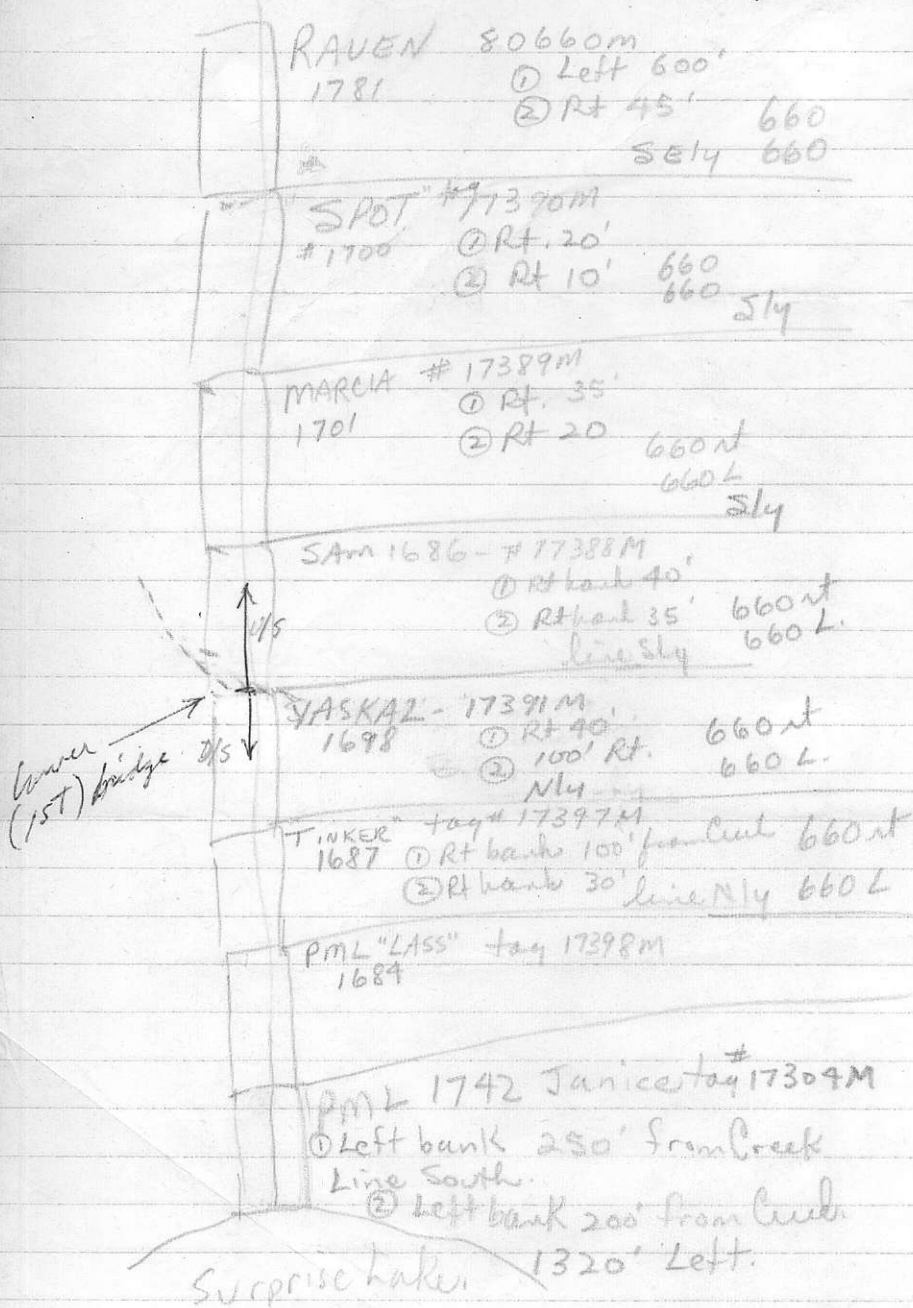 RAVEN 80660m
1781
① Left 600'
② Rt 45' 660
SEly 660
"SPOT" # 17390M
#1700 ① Rt. 20'
② Rt 10' 660
660
Sly
MARCIA # 17389M
1701 ① Rt. 35'
② Rt 20
660 rt
660 L
Sly
SAM 1686 - # 17388M
① Rt bank 40'
② Rt bank 35' 660 rt
line Sly 660 L.
U/S
YASKAZ - 17391M
1698 ① Rt 40' 660 rt
② 100' Rt. 660 L.
Nly
D/S
Lower
(1ST) bridge
"TINKER" tag # 17397M
1687 ① Rt bank 100' from 660 rt
② Rt bank 30' line Nly 660 L
PML "LASS" tag 17398M
1684
PML 1742 Janice tag # 17304M
① Left bank 250' from Creek
Line South.
② Left bank 200' from
1320' Left.
Surprise Lake.